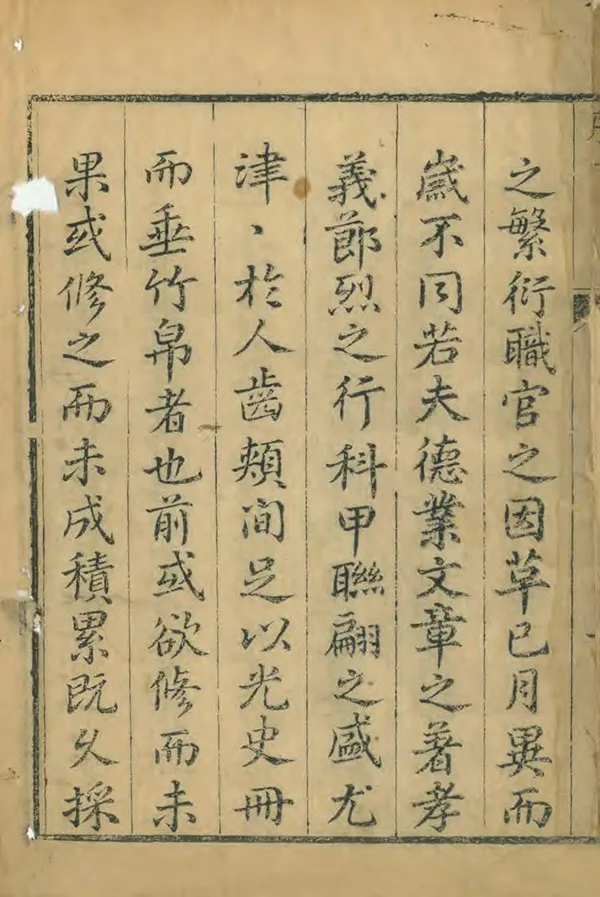 之繁衍職官之因革已月異而
歲不同若夫德業文章之著孝
義節烈之行科甲聯翩之盛尤
津、於人齒頰間足以光史冊
而垂竹帛者也前或欲修而未
果或修之而未成積累既久採